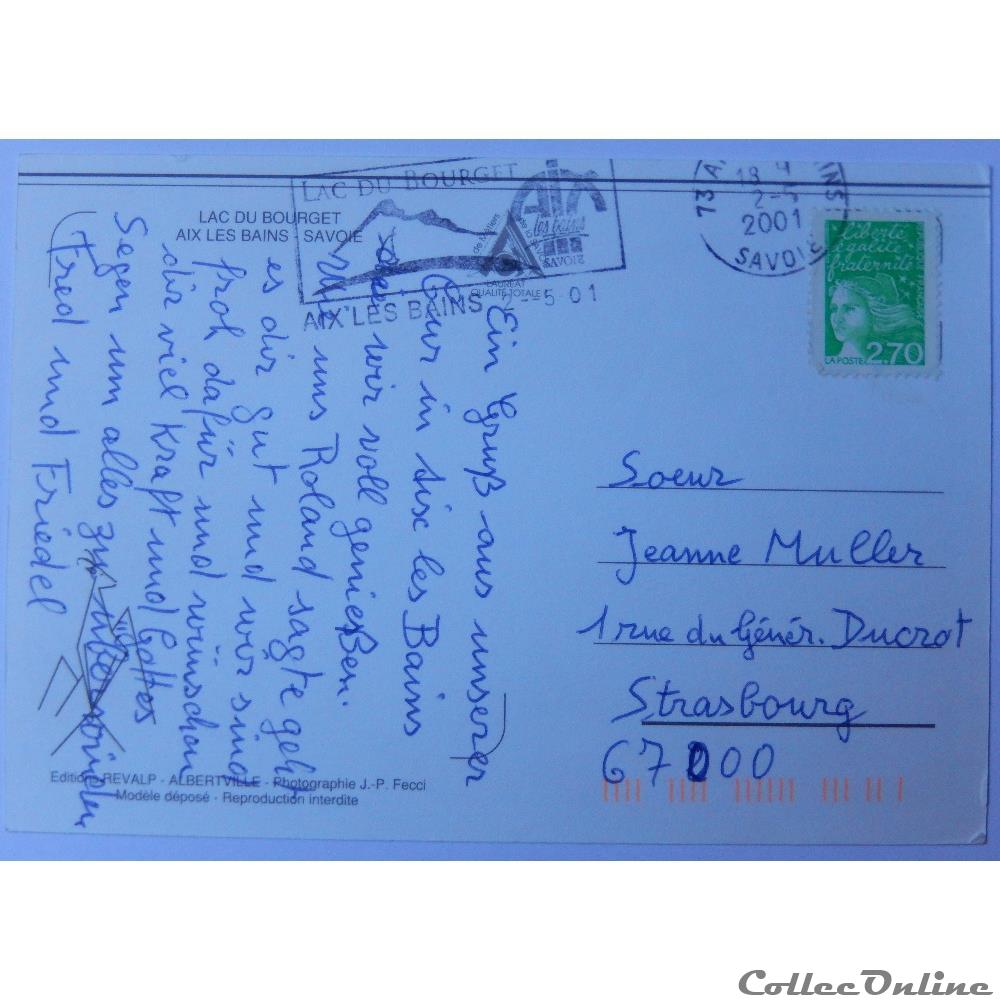 LAC DU BOURGET
AIX LES BAINS - SAVOIE
LAC DU BOURGET
AIX
les bains
SAVOIE
LAURÉAT
QUALITÉ TOTALE
AIX LES BAINS 2-5-01
73 A INS
18 4
2-5
2001
SAVOIE
liberté
égalité
fraternité
LA POSTE 2,70
Ein Gruß aus unserer
Kur in Aix les Bains
die wir voll genießen.
Wie uns Roland sagte geht
es dir gut und wir sind
froh dafür und wünschen
dir viel Kraft und Gottes
Segen um alles zu überwinden
Fred und Friedel
Soeur
Jeanne Muller
1 rue du Génér. Ducrot
Strasbourg
67000
Editions REVALP - ALBERTVILLE - Photographie J.-P. Fecci
Modèle déposé - Reproduction interdite
CollecOnline